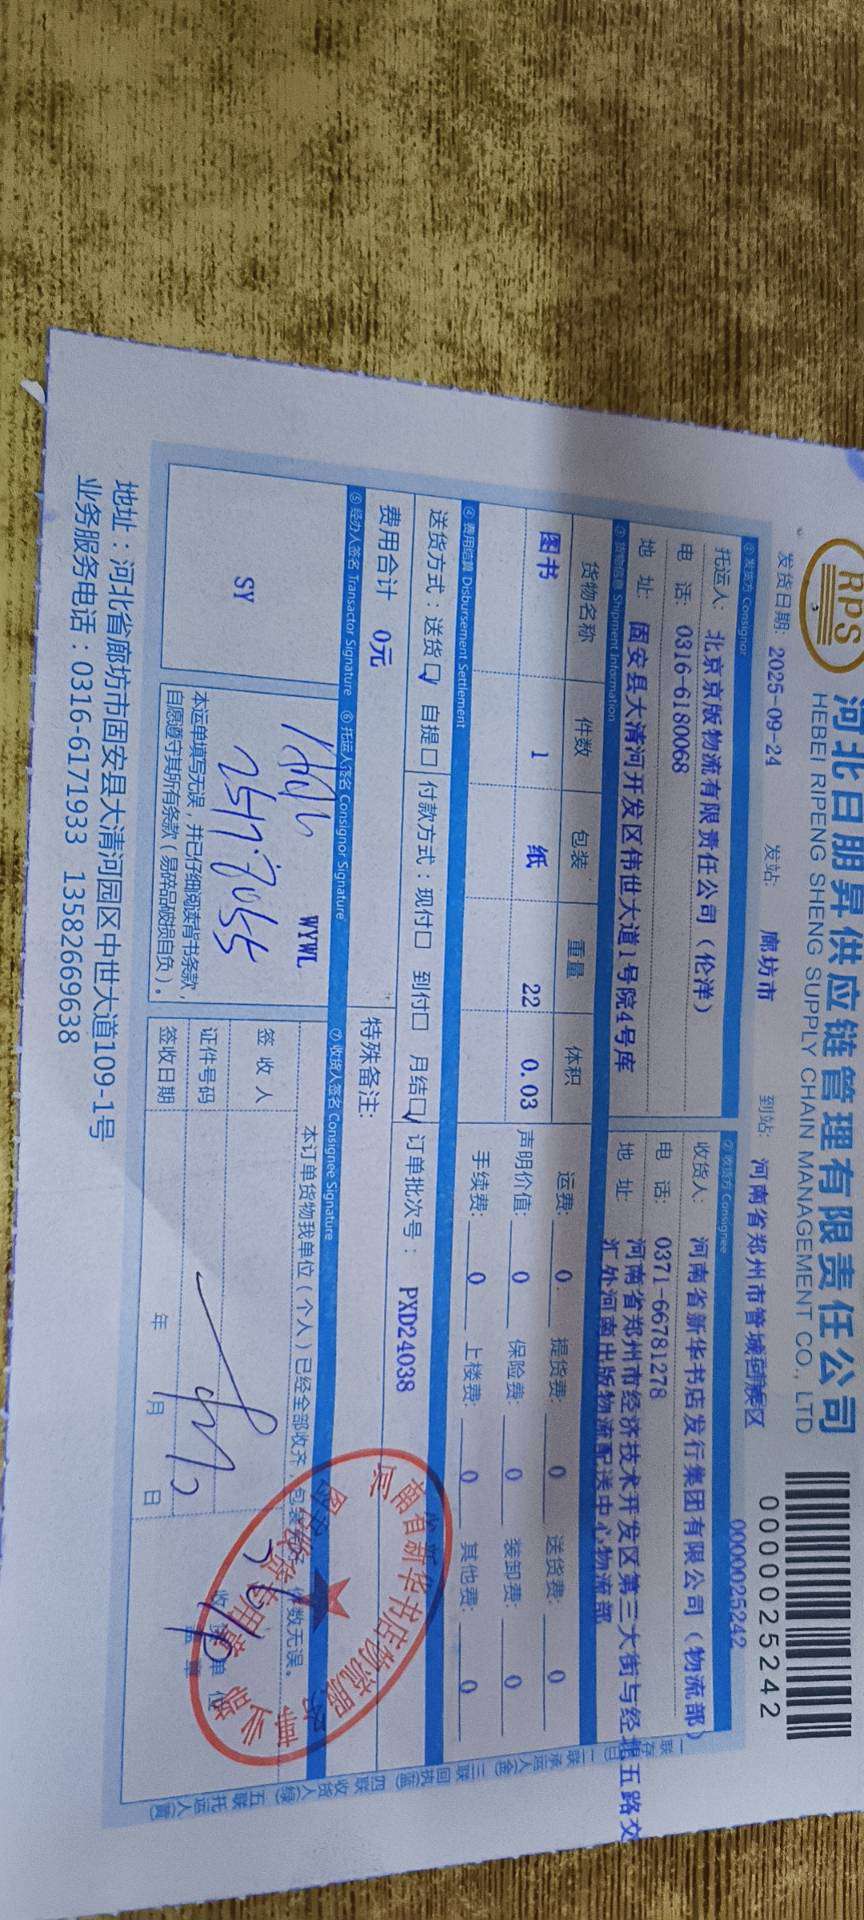 RPS
河北日朋昇供应链管理有限责任公司
HEBEI RIPENG SHENG SUPPLY CHAIN MANAGEMENT CO., LTD
0000025242
发货日期: 2025-09-24 发站: 廊坊市 到站: 河南省郑州市管城回族区 0000025242
①发货方 Consignor ②收货方 Consignee
托运人: 北京京版物流有限责任公司（伦洋） 收货人: 河南省新华书店发行集团有限公司（物流部）
电 话: 0316-6180068 电 话: 0371-66781278
地 址: 固安县大清河开发区伟世大道1号院4号库 地 址: 河南省郑州市经济技术开发区第三大街与经北五路交
汇处河南出版物流配送中心物流部
③货物信息 Shipment Information
货物名称 件数 包装 重量 体积 运费: 0 提货费: 0 送货费: 0
图书 1 纸 22 0.03 声明价值: 0 保险费: 0 装卸费: 0
手续费: 0 上楼费: 0 其他费: 0
④费用结算 Disbursement Settlement
送货方式：送货☑ 自提□ 付款方式：现付□ 到付□ 月结☑ 订单批次号： PXD24038
费用合计 0元 特殊备注:
⑤经办人签名 Transactor Signature ⑥托运人签名 Consignor Signature ⑦收货人签名 Consignee Signature
SY WYWL
本运单填写无误，并已仔细阅读背书条款，
自愿遵守其所有条款（易碎品破损自负）。
本订单货物我单位（个人）已经全部收齐，包装完好，件数无误。
签 收 人
证件号码
签收日期 年 月 日
收货单位
盖章
河南省新华书店物流服务事业部
图书验收专用章
一联存 二联承运人(金) 三联回执(蓝) 四联收货人(绿) 五联托运人(黄)
地址：河北省廊坊市固安县大清河园区中世大道109-1号
业务服务电话：0316-6171933 13582669638